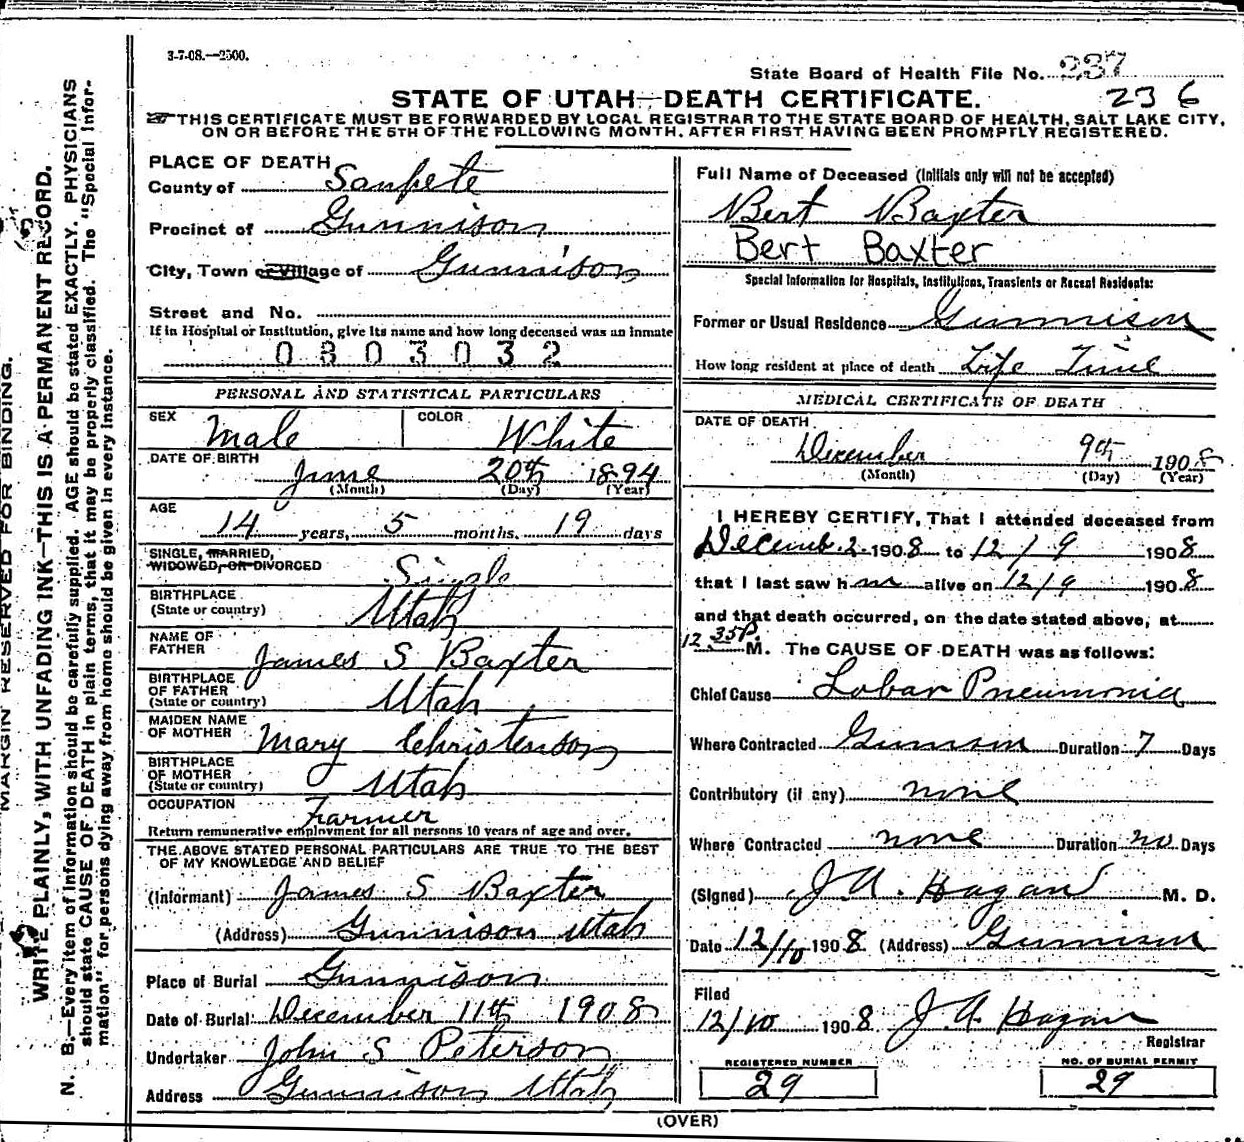 3-7-08.—2500.
State Board of Health File No. 237
236
STATE OF UTAH—DEATH CERTIFICATE.
THIS CERTIFICATE MUST BE FORWARDED BY LOCAL REGISTRAR TO THE STATE BOARD OF HEALTH, SALT LAKE CITY,
ON OR BEFORE THE 5TH OF THE FOLLOWING MONTH, AFTER FIRST HAVING BEEN PROMPTLY REGISTERED.
MARGIN RESERVED FOR BINDING.
WRITE PLAINLY, WITH UNFADING INK—THIS IS A PERMANENT RECORD.
N. B.—Every item of information should be carefully supplied. AGE should be stated EXACTLY. PHYSICIANS
should state CAUSE OF DEATH in plain terms, that it may be properly classified. The "Special Infor-
mation" for persons dying away from home should be given in every instance.
PLACE OF DEATH
County of Sanpete
Precinct of Gunnison
City, Town or Village of Gunnison
Street and No.
If in Hospital or Institution, give its name and how long deceased was an inmate
0803032
PERSONAL AND STATISTICAL PARTICULARS
SEX Male COLOR White
DATE OF BIRTH June 20th 1894
(Month) (Day) (Year)
AGE 14 years, 5 months, 19 days
SINGLE, MARRIED,
WIDOWED, OR DIVORCED Single
BIRTHPLACE
(State or country) Utah
NAME OF
FATHER James S Baxter
BIRTHPLACE
OF FATHER
(State or country) Utah
MAIDEN NAME
OF MOTHER Mary Christenson
BIRTHPLACE
OF MOTHER
(State or country) Utah
OCCUPATION Farmer
Return remunerative employment for all persons 10 years of age and over.
THE ABOVE STATED PERSONAL PARTICULARS ARE TRUE TO THE BEST
OF MY KNOWLEDGE AND BELIEF
(Informant) James S Baxter
(Address) Gunnison Utah
Place of Burial Gunnison
Date of Burial December 11th 1908
Undertaker John S Peterson
Address Gunnison Utah
Full Name of Deceased (Initials only will not be accepted)
Bert Baxter
Bert Baxter
Special Information for Hospitals, Institutions, Transients or Recent Residents:
Former or Usual Residence Gunnison
How long resident at place of death Life Time
MEDICAL CERTIFICATE OF DEATH
DATE OF DEATH
December 9th 1908
(Month) (Day) (Year)
I HEREBY CERTIFY, That I attended deceased from
Decemb. 2 1908 to 12/9 1908
that I last saw h m alive on 12/9 1908
and that death occurred, on the date stated above, at
12 35P. M. The CAUSE OF DEATH was as follows:
Chief Cause Lobar Pneumonia
Where Contracted Gunnison Duration 7 Days
Contributory (if any) none
Where Contracted none Duration no Days
(Signed) J A. Hagan M. D.
Date 12/10 1908 (Address) Gunnison
Filed
12/10 1908 J. A. Hagan
Registrar
REGISTERED NUMBER
29
NO. OF BURIAL PERMIT
29
(OVER)